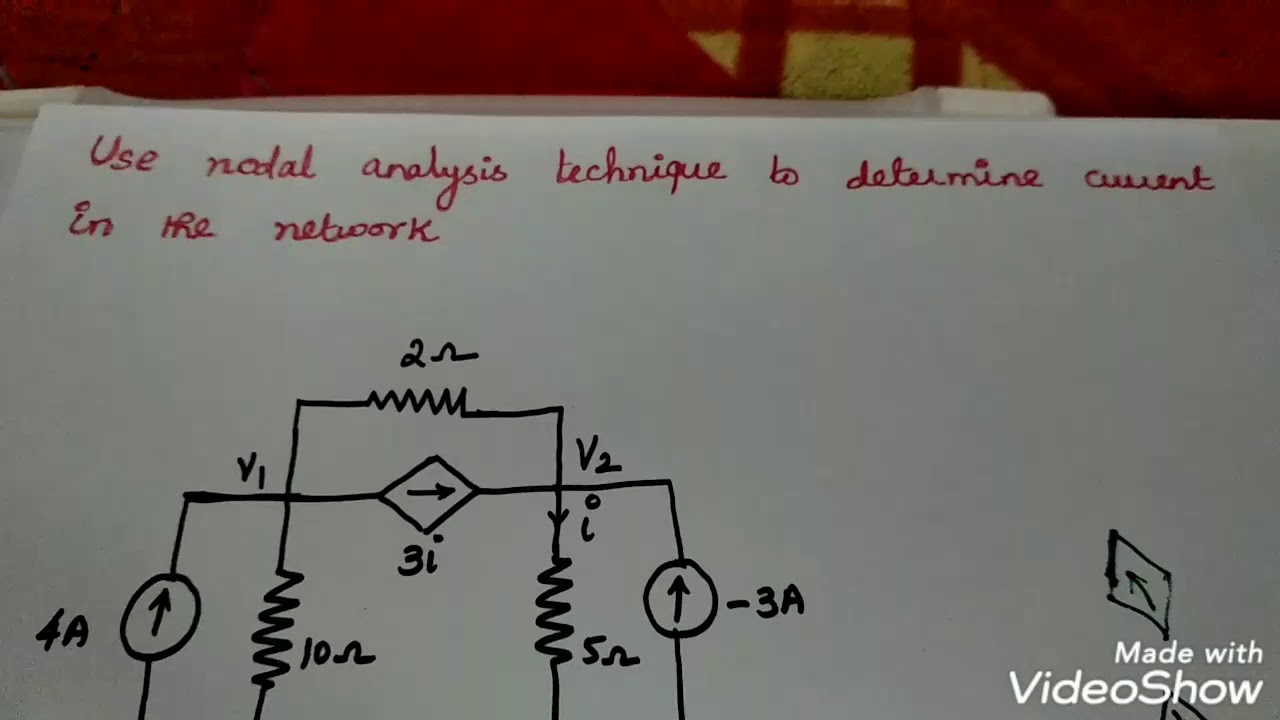 Use nodal analysis technique to determine current
in the network
2Ω
V1
V2
i
3i
4A
10Ω
5Ω
-3A
Made with
VideoShow